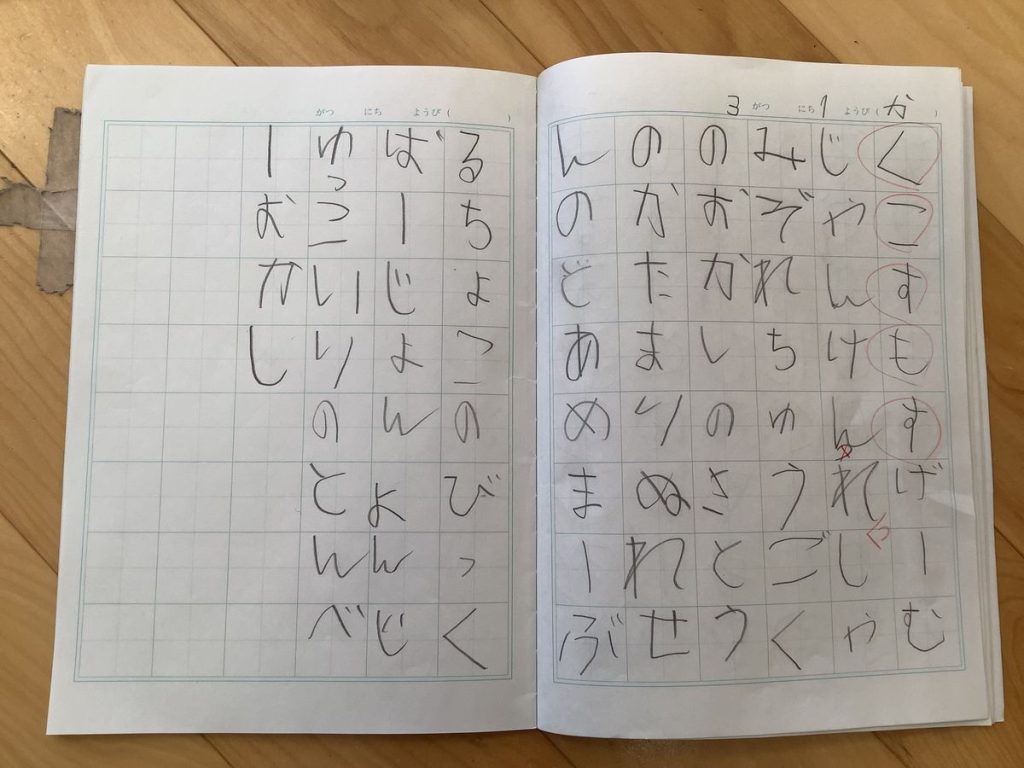 3 がつ にち 1 ようび( か )
くこすもすげーむ
じゃんけんれしゃ
みぞれちゅうごく
のおかしのさとう
のかたまりぬれせ
んのどあめまーぶ
がつ にち ようび( )
るちょこのびっく
ばーじょんよんじ
ゅっこいりのとんべ
ーおかし